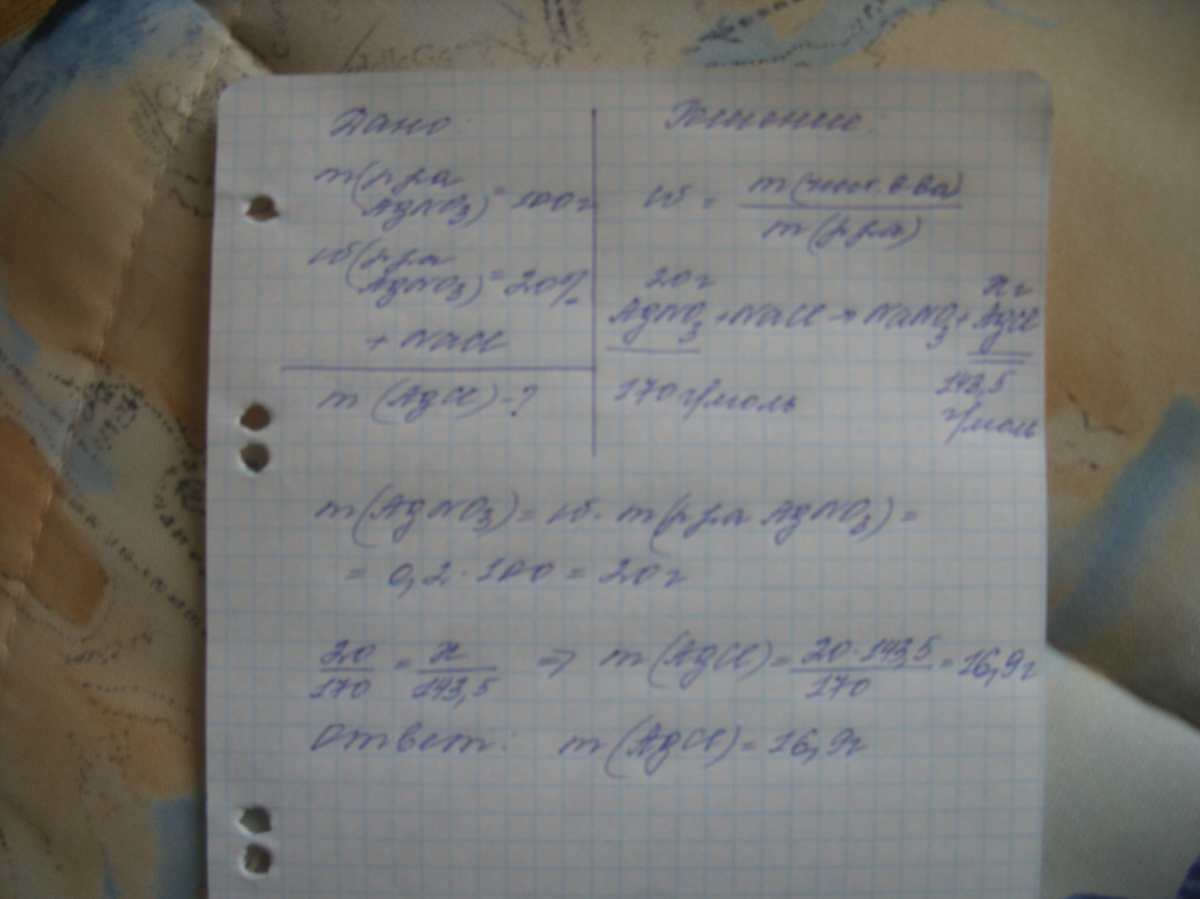 Дано:
m(р-ра
AgNO3) = 100г
w(р-ра
AgNO3) = 20%
+ NaCl
m (AgCl) - ?
Решение:
w = m(чист. в-ва)
m(р-ра)
20г
xг
AgNO3 + NaCl → NaNO3 + AgCl
170 г/моль
143,5
г/моль
m(AgNO3) = w · m(р-ра AgNO3) =
= 0,2 · 100 = 20г
20/170 = x/143,5 => m (AgCl) = 20·143,5/170 = 16,9г
Ответ: m (AgCl) = 16,9г